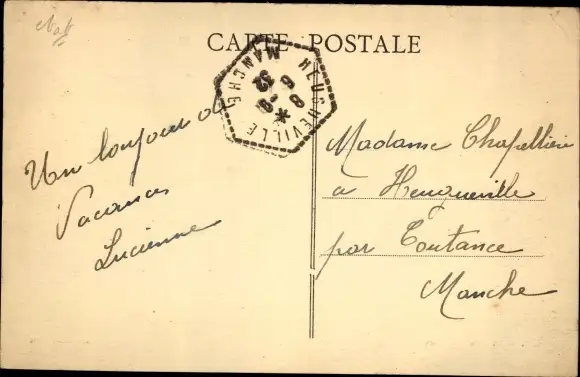 CARTE POSTALE
HEUGUEVILLE
MANCHE
8 -9
6 32
Un bonjour de
Vacances
Lucienne
Madame Chapellière
à Heugueville
par Coutance
Manche